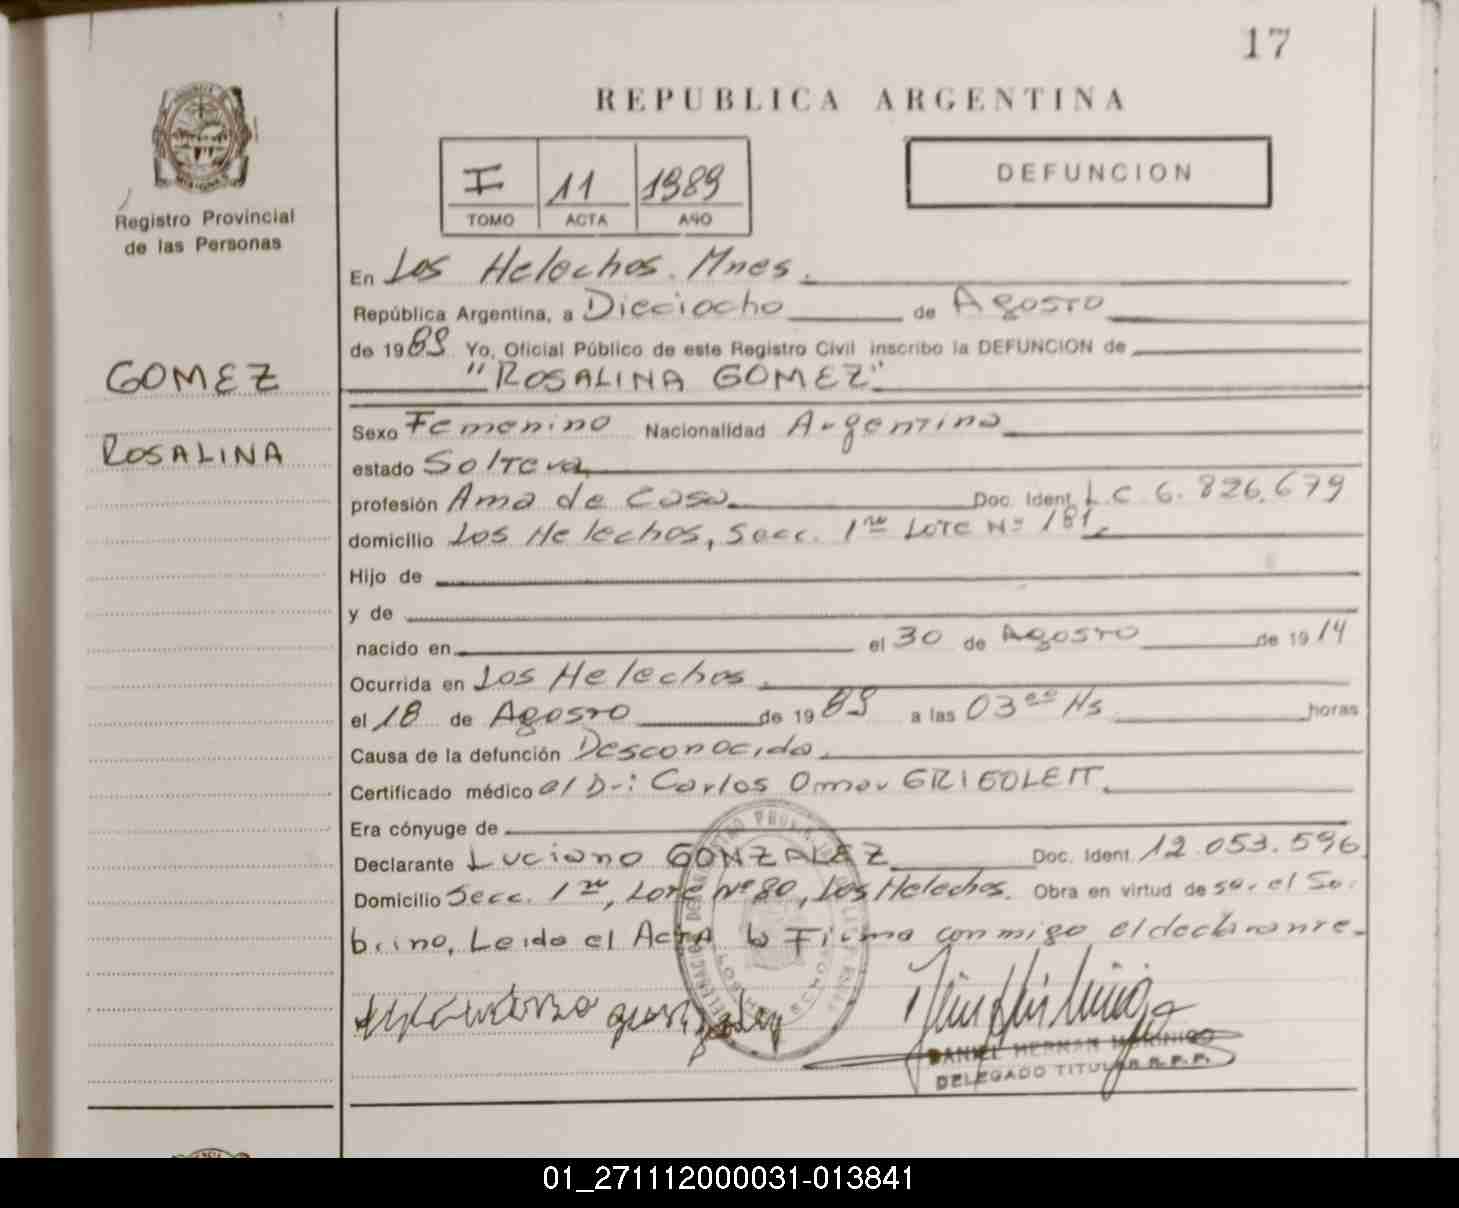 17
REPUBLICA ARGENTINA
I 11 1989
TOMO ACTA AÑO
DEFUNCION
Registro Provincial
de las Personas
GOMEZ
ROSALINA
En Los Helechos. Mnes.
República Argentina, a Dieciocho de Agosto
de 1989 Yo, Oficial Público de este Registro Civil inscribo la DEFUNCION de
"ROSALINA GOMEZ"
Sexo Femenino Nacionalidad Argentina
estado Soltera
profesión Ama de Casa Doc. Ident. L.C 6.826.679
domicilio Los Helechos, Secc. 1ra Lote Nº 181
Hijo de
y de
nacido en el 30 de Agosto de 1914
Ocurrida en Los Helechos.
el 18 de Agosto de 1989 a las 03 Hs horas
Causa de la defunción Desconocida.
Certificado médico el Dr: Carlos Omar GRIGOLEIT.
Era cónyuge de
Declarante Luciano GONZALEZ Doc. Ident. 12.053.596
Domicilio Secc. 1ra, Lote Nº 80, Los Helechos. Obra en virtud de ser el So-
brino, Leida el Acta la Firma conmigo el declarante.-
DANIEL HERNAN
DELEGADO TITULAR R.P.P.
01_271112000031-013841